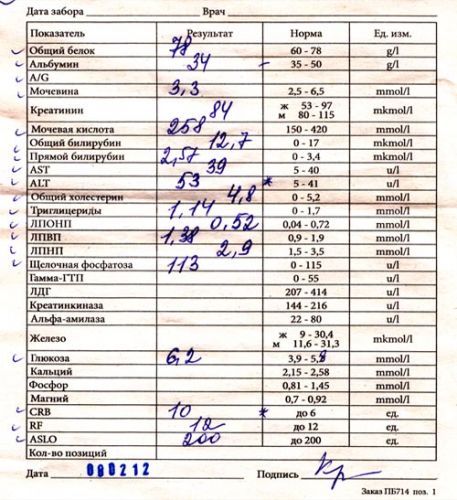 Дата забора Врач
Показатель Результат Норма Ед. изм.
Общий белок 78 60 - 78 g/l
Альбумин 34 - 35 - 50 g/l
A/G
Мочевина 3,3 2,5 - 6,5 mmol/l
Креатинин 84 ж 53 - 97 м 80 - 115 mkmol/l
Мочевая кислота 258 150 - 420 mmol/l
Общий билирубин 12,7 0 - 17 mkmol/l
Прямой билирубин 2,57 0 - 3,4 mkmol/l
AST 39 5 - 40 u/l
ALT 53 * 5 - 41 u/l
Общий холестерин 4,8 0 - 5,2 mmol/l
Триглицериды 1,14 0 - 1,7 mmol/l
ЛПОНП 0,52 0,04 - 0,72 mmol/l
ЛПВП 1,38 0,9 - 1,9 mmol/l
ЛПНП 2,9 1,5 - 3,5 mmol/l
Щелочная фосфатоза 113 0 - 115 u/l
Гамма-ГТП 0 - 55 u/l
ЛДГ 207 - 414 u/l
Креатинкиназа 144 - 216 u/l
Альфа-амилаза 22 - 80 u/l
Железо ж 9 - 30,4 м 11,6 - 31,3 mkmol/l
Глюкоза 6,2 3,9 - 5,8 mmol/l
Кальций 2,15 - 2,58 mmol/l
Фосфор 0,81 - 1,45 mmol/l
Магний 0,7 - 0,92 mmol/l
CRB 10 * до 6 ед.
RF 12 до 12 ед.
ASLO 200 до 200 ед.
Кол-во позиций
Дата 080212 Подпись
Заказ ПБ714 поз. 1